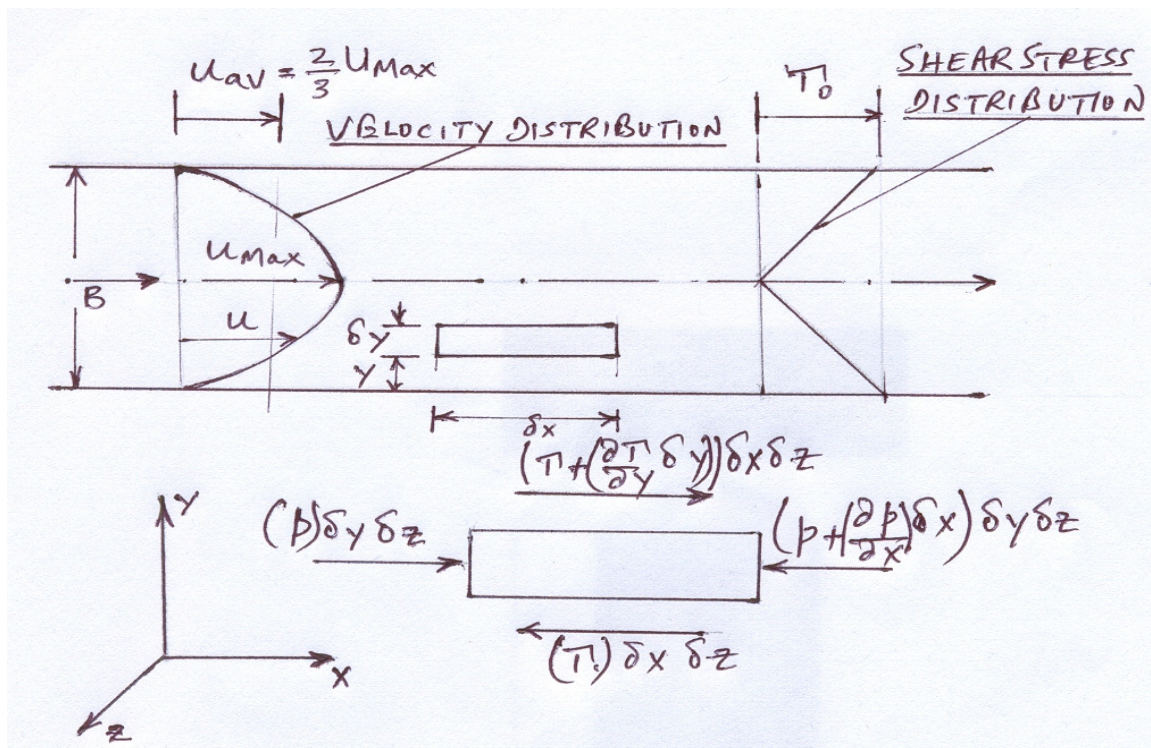 uav = 2/3 UMax
VELOCITY DISTRIBUTION
T0
SHEAR STRESS
DISTRIBUTION
UMax
B
u
δy
y
δx
(T+(∂T/∂y δy))δxδz
(p)δyδz
(p+(∂p/∂x)δx)δyδz
(T)δxδz
Y
X
Z